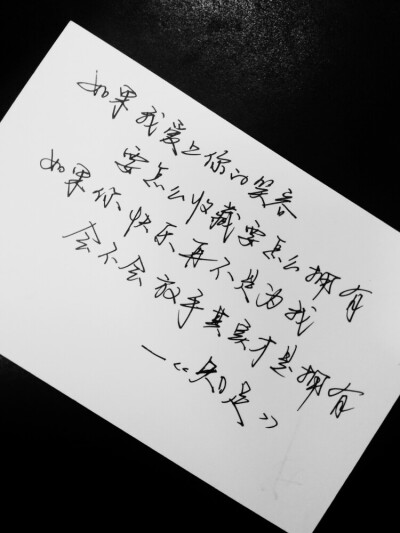 如果我爱上你的笑容
要怎么收藏要怎么拥有
如果你快乐再不是为我
会不会放手其实才是拥有
—《知足》